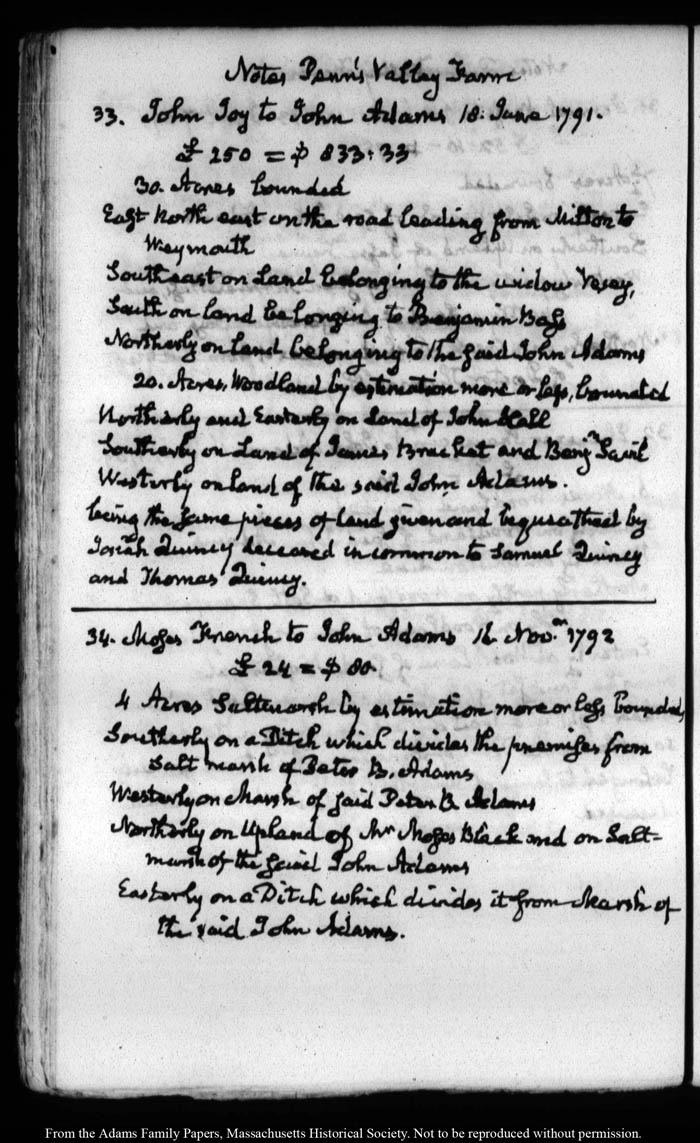 Notes Penn's Valley Farm
33. John Joy to John Adams 18. June 1791.
£ 250 = $ 833:33
30. Acres bounded
East North east on the road leading from Milton to
Weymouth
Southeast on Land belonging to the widow Vesey,
South on land belonging to Benjamin Bass
Northerly on land belonging to the said John Adams
20. Acres, Woodland by estimation more or less, bounded
Northerly and Easterly on Land of John Hall
Southerly on Land of James Bracket and Benjn Savil
Westerly on land of the said John Adams.
being the same pieces of land given and bequeathed by
Josiah Quincy deceased in common to Samuel Quincy
and Thomas Quincy.
34. Moses French to John Adams 16 Novr. 1792
£ 24 = $ 80.
4 Acres Saltmarsh by estimation more or less bounded,
Southerly on a Ditch which divides the premises from
Salt marsh of Peter B. Adams
Westerly on Marsh of said Peter B. Adams
Northerly on Upland of Mr Moses Black and on Salt=
marsh of the said John Adams
Easterly on a Ditch which divides it from Marsh of
the said John Adams.
From the Adams Family Papers, Massachusetts Historical Society. Not to be reproduced without permission.